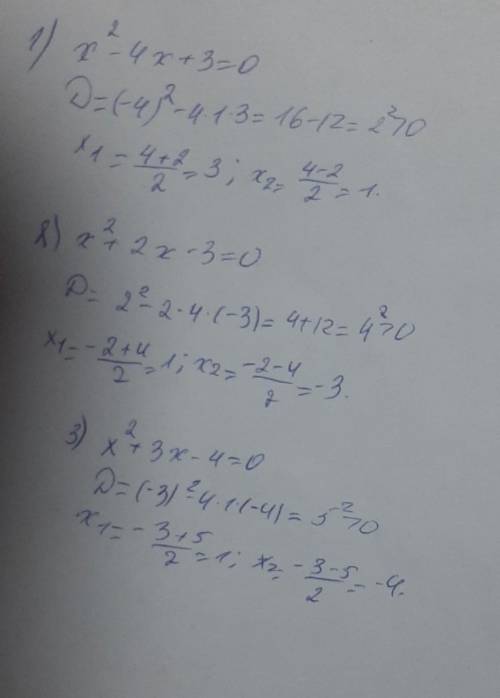 1) x² - 4x + 3 = 0
D = (-4)² - 4·1·3 = 16 - 12 = 2² > 0
x1 = (4+2)/2 = 3; x2 = (4-2)/2 = 1.
2) x² + 2x - 3 = 0
D = 2² - 2·4·(-3) = 4 + 12 = 4² > 0
x1 = (-2+4)/2 = 1; x2 = (-2-4)/2 = -3.
3) x² + 3x - 4 = 0
D = (-3)² - 4·1·(-4) = 5² > 0
x1 = (-3+5)/2 = 1; x2 = (-3-5)/2 = -4.